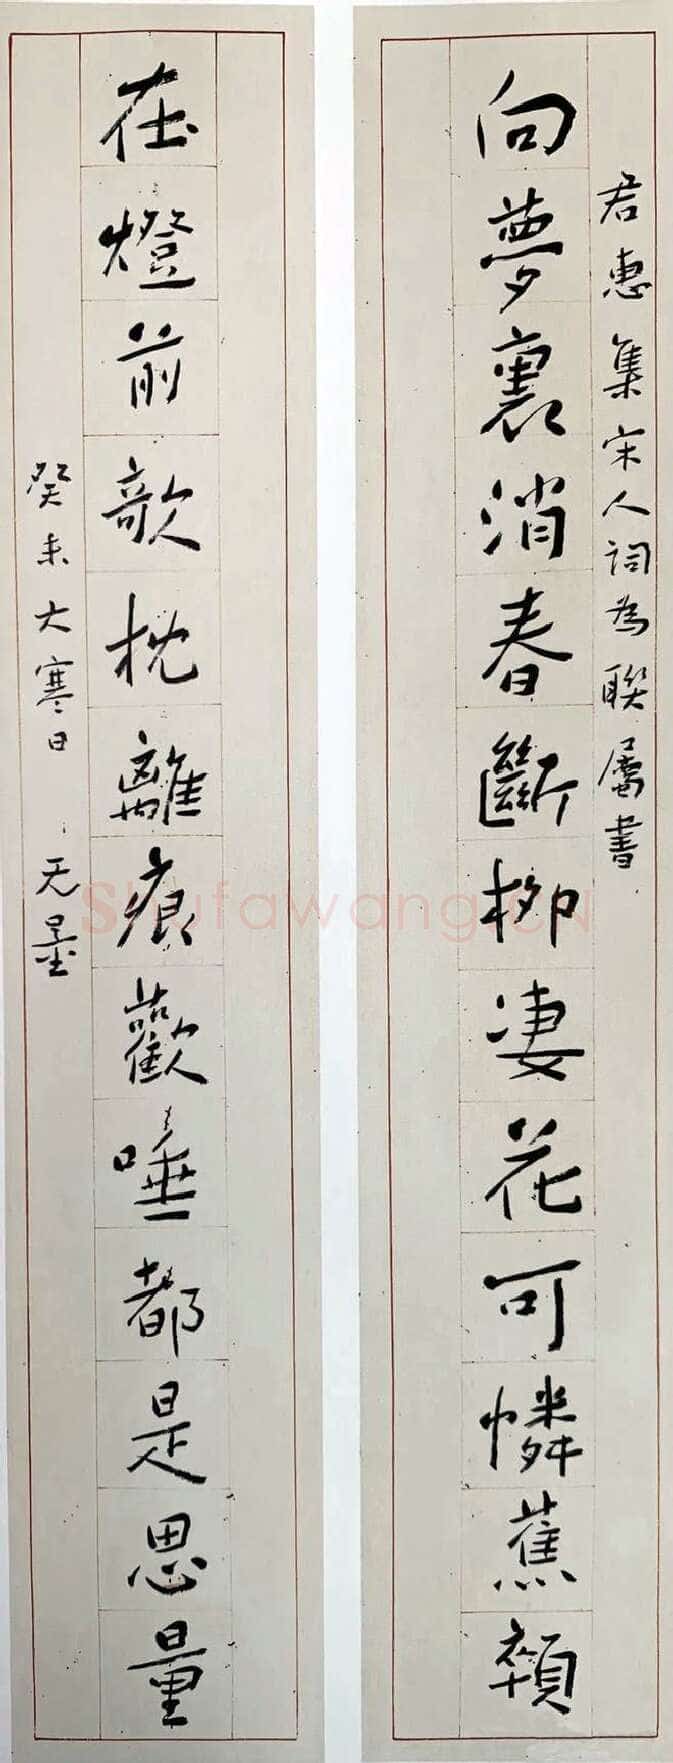 君惠集宋人词為联屬書
向夢裏消春斷柳凄花可憐蕉顇
在燈前欹枕離痕歡唾都是思量
癸未大寒日 无量
Shufawang.CN